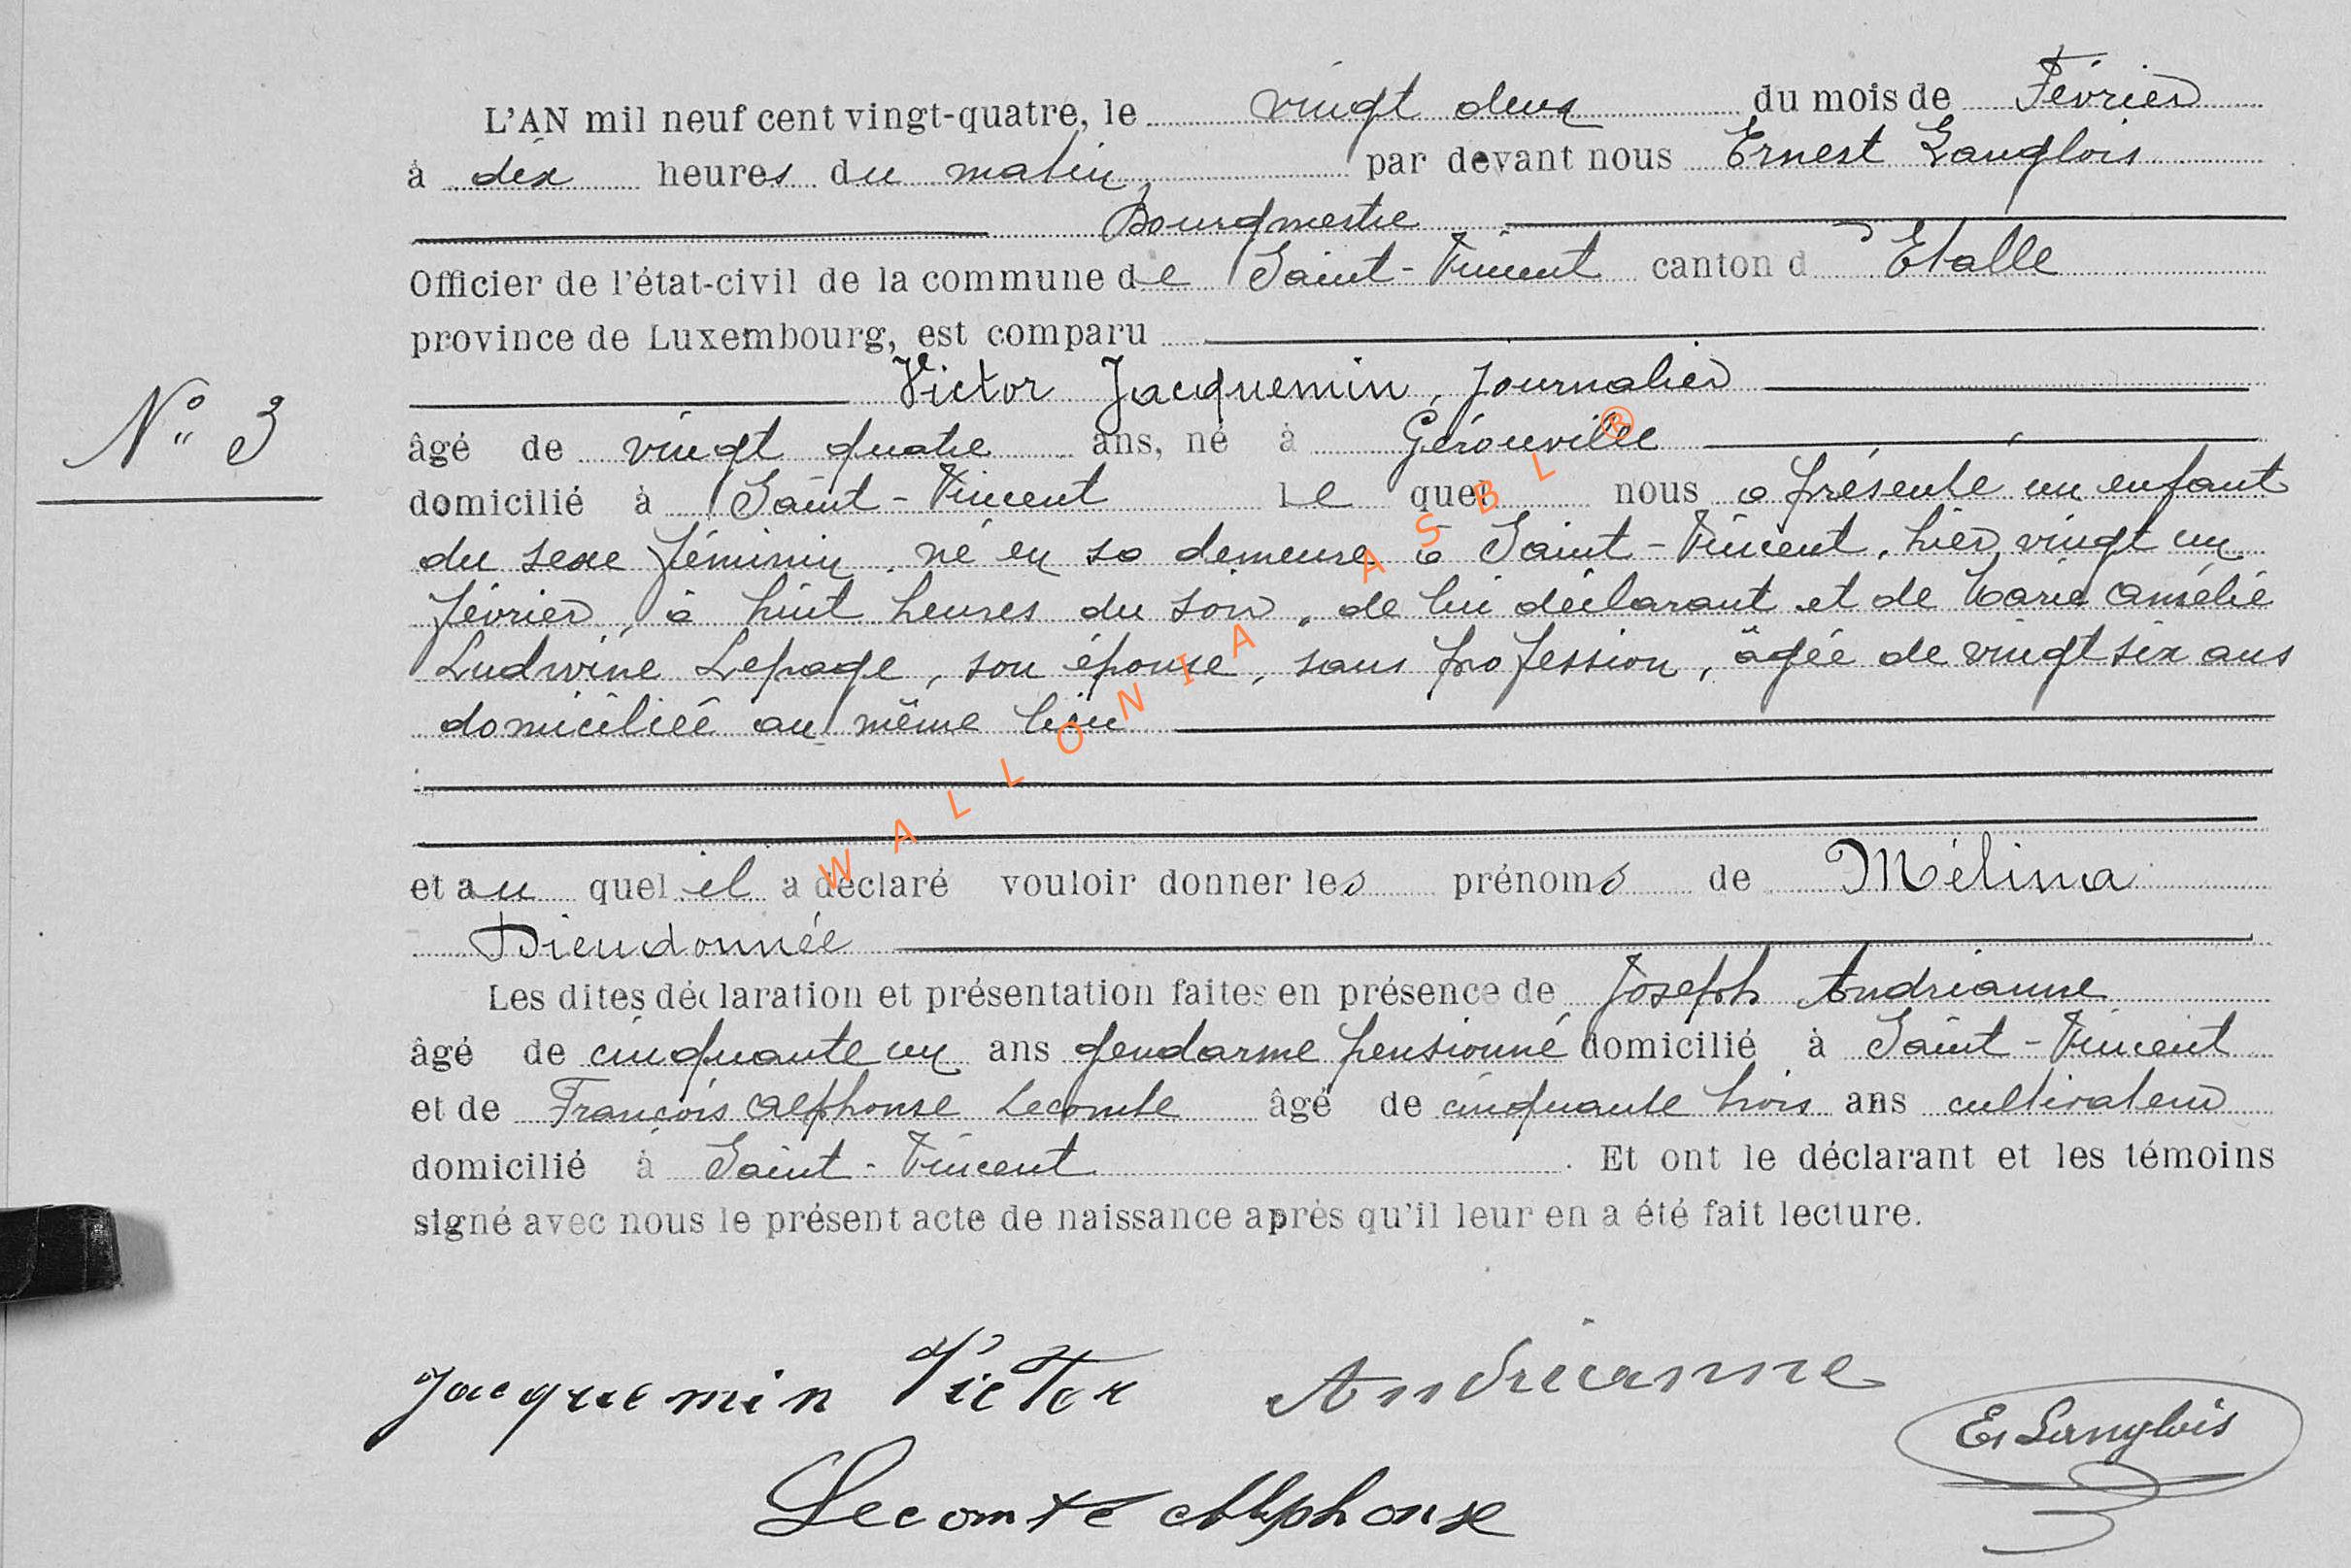 L'AN mil neuf cent vingt-quatre, le vingt deux du mois de Février
à dix heures du matin par devant nous Ernest Langlois
Bourgmestre
Officier de l'état-civil de la commune de Saint-Vincent canton d'Etalle
province de Luxembourg, est comparu
Victor Jacquemin, journalier
N° 3
âgé de vingt quatre ans, né à Gérouville
domicilié à Saint-Vincent le quel nous a présenté un enfant
du sexe féminin, né en sa demeure à Saint-Vincent, hier vingt un
février, à huit heures du soir, de lui déclarant et de Marie Amélie
Ludwine Lepage, son épouse, sans profession, âgée de vingt six ans
domiciliée au même lieu
et au quel il a déclaré vouloir donner les prénoms de Mélina
Dieudonnée
Les dites déclaration et présentation faites en présence de Joseph Andrianne
âgé de cinquante un ans gendarme pensionné domicilié à Saint-Vincent
et de François Alphonse Lecomte âgé de cinquante trois ans cultivateur
domicilié à Saint-Vincent. Et ont le déclarant et les témoins
signé avec nous le présent acte de naissance après qu'il leur en a été fait lecture.
Jacquemin Victor Andrianne
E. Langlois
Lecomte Alphonse
WALLONIA ASBL ®